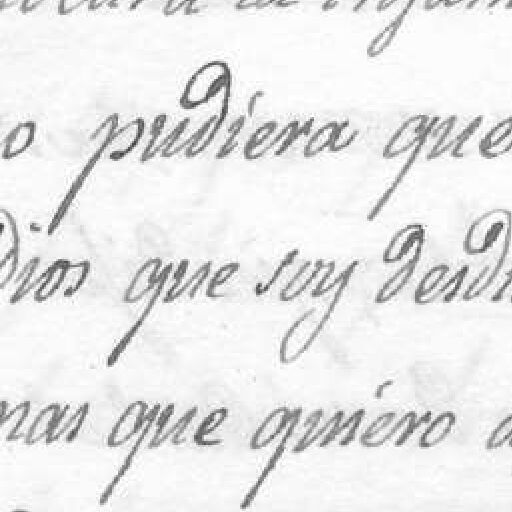 o pudiera que
Dios que soy desd
mas que quiéro a